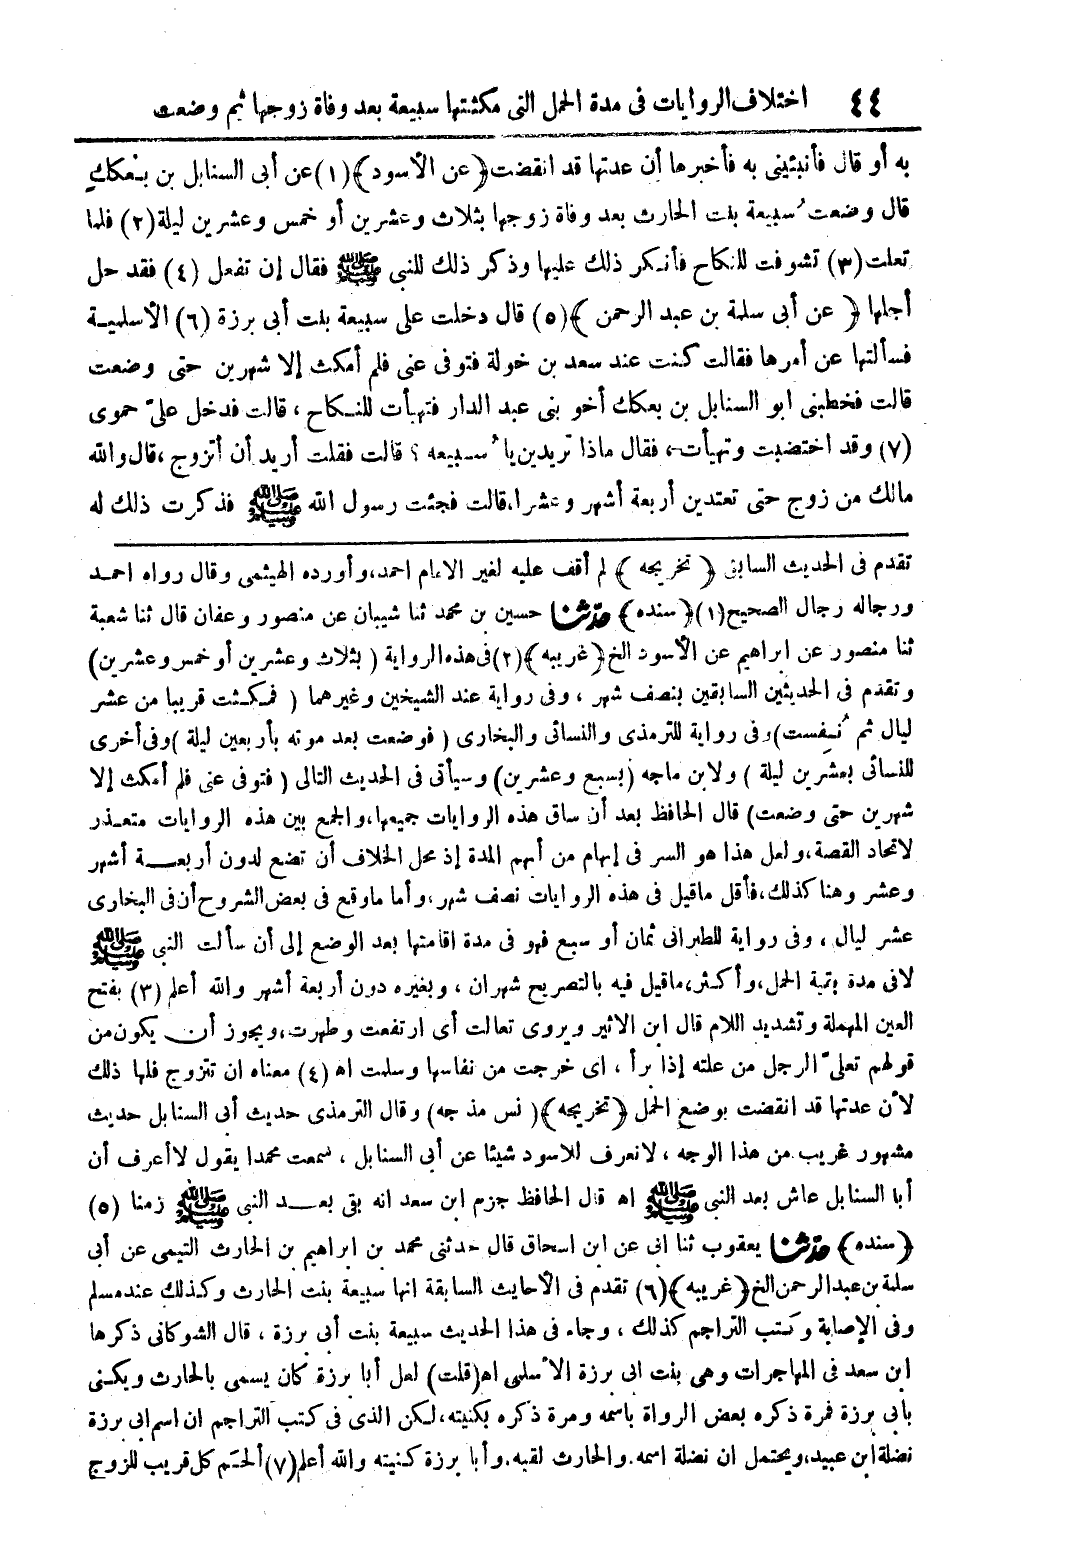 ٤٤ اختلاف الروايات فى مدة الحمل التى مكثتها سبيعة بعد وفاة زوجها ثم وضعت
به أو قال فأنبئينى به فأخبرها أن عدتها قد انقضت ﴿عن الأسود﴾ (١) عن أبى السنابل بن بعكك
قال وضعت سُبيعة بنت الحارث بعد وفاة زوجها بثلاث وعشرين أو خمس وعشرين ليلة (٢) فلما
تعلت (٣) تشوفت للنكاح فأنكر ذلك عليها وذكر ذلك للنبى ﷺ فقال إن تفعل (٤) فقد حل
أجلها ﴿عن أبى سلمة بن عبد الرحمن﴾ (٥) قال دخلت على سبيعة بنت أبى برزة (٦) الأسلمية
فسألتها عن أمرها فقالت كنت عند سعد بن خولة فتوفى عنى فلم أمكث إلا شهرين حتى وضعت
قالت فخطبنى ابو السنابل بن بعكك أخو بنى عبد الدار فتهيأت للنكاح، قالت فدخل علىّ حموى
(٧) وقد اختضبت وتهيأت، فقال ماذا تريدين يا سُبيعه؟ قالت فقلت أريد أن أتزوج، قال والله
مالك من زوج حتى تعتدين أربعة أشهر وعشرا، قالت فجئت رسول الله ﷺ فذكرت ذلك له
تقدم فى الحديث السابق ﴿تخريجه﴾ لم أقف عليه لغير الامام احمد، وأورده الهيثمى وقال رواه احمد
ورجاله رجال الصحيح (١) ﴿سنده﴾ حدّثنا حسين بن محمد ثنا شيبان عن منصور وعفان قال ثنا شعبة
ثنا منصور عن ابراهيم عن الأسود الخ ﴿غريبه﴾ (٢) فى هذه الرواية (بثلاث وعشرين أو خمس وعشرين)
وتقدم فى الحديثين السابقين بنصف شهر، وفى رواية عند الشيخين وغيرهما (فمكثت قريبا من عشر
ليال ثم نُفِست) وفى رواية للترمذى والنسائى والبخارى (فوضعت بعد موته بأربعين ليلة) وفى أخرى
للنسائى بعشرين ليلة) ولابن ماجه (بسبع وعشرين) وسيأتى فى الحديث التالى (فتوفى عنى فلم أمكث إلا
شهرين حتى وضعت) قال الحافظ بعد أن ساق هذه الروايات جميعها، والجمع بين هذه الروايات متعذر
لاتحاد القصة، ولعل هذا هو السر فى إبهام من أبهم المدة إذ محل الخلاف أن تضع لدون أربعة أشهر
وعشر وهنا كذلك، فأقل ماقيل فى هذه الروايات نصف شهر، وأما ماوقع فى بعض الشروح أن فى البخارى
عشر ليال، وفى رواية للطبرانى ثمان أو سبع فهو فى مدة اقامتها بعد الوضع إلى أن سألت النبى ﷺ
لافى مدة بقية الحمل، وأكثر، ماقيل فيه بالتصريح شهران، وبغيره دون أربعة أشهر والله أعلم (٣) بفتح
العين المهملة وتشديد اللام قال ابن الاثير ويروى تعالت أى ارتفعت وطهرت، ويجوز أن يكون من
قولهم تعلىّ الرجل من علته إذا برأ، اى خرجت من نفاسها وسلمت اه (٤) معناه ان تتزوج فلها ذلك
لأن عدتها قد انقضت بوضع الحمل ﴿تخريجه﴾ (نس مذ جه) وقال الترمذى حديث أبى السنابل حديث
مشهور غريب من هذا الوجه، لانعرف للاسود شيئا عن أبى السنابل، سمعت محمدا يقول لا أعرف أن
أبا السنابل عاش بعد النبى ﷺ اه قال الحافظ جزم ابن سعد انه بقى بعد النبى ﷺ زمنا (٥)
﴿سنده﴾ حدّثنا يعقوب ثنا ابى عن ابن اسحاق قال حدثنى محمد بن ابراهيم بن الحارث التيمى عن أبى
سلمة بن عبد الرحمن الخ ﴿غريبه﴾ (٦) تقدم فى الأحايث السابقة انها سبيعة بنت الحارث وكذلك عند مسلم
وفى الإصابة وكتب التراجم كذلك، وجاء فى هذا الحديث سبيعة بنت أبى برزة، قال الشوكانى ذكرها
ابن سعد فى المهاجرات وهى بنت ابى برزة الأسلمى اه (قلت) لعل أبا برزة كان يسمى بالحارث ويكنى
بابى برزة فمرة ذكره بعض الرواة باسمه ومرة ذكره بكنيته، لكن الذى فى كتب التراجم ان اسم ابى برزة
نضلة ابن عبيد، ويحتمل ان نضلة اسمه. والحارث لقبه. وأبا برزة كنيته والله أعلم (٧) ألحتم كل قريب للزوج